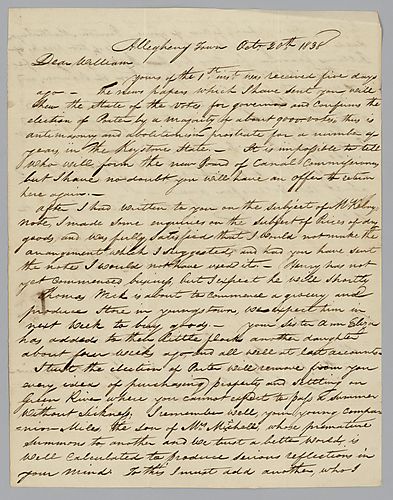 Allegheny Town Octr 20th 1838
Dear William
yours of the 1st inst was received five days
ago — The news papers which I have sent you will
shew the state of the votes for governor and confirms the
election of Porter by a majority of about votes, this is
antimasonry and abolitionism prostrate for a number of
years in The Keystone State — It is impossible to tell
who will form the new Board of Canal Commissioners
but I have no doubt you will have an offer to return
here again. —
after I had written to you on the subject of Mr
note, I made some enquiries on the subject of Prices of dry
goods and was fully satisfied that I could not make the
arrangement which I suggested, and had you have sent
the note I would not have used it. — Henry has not
yet commenced business, but I expect he will shortly
Thomas Mick is about to commence a grocery and
produce Store in youngstown, We expect him in
next week to buy goods — your Sister Ann Eliza
has added to their little flock another daughter
about four weeks ago, and all well at last accounts
I trust the election of Porter will remove from you
every idea of purchasing property and settling on
Green River where you cannot expect to pass a summer
without sickness, I remember well your young compan
nion Miles the son of Mr Nickolls, whose premature
summons to another and we trust a better world, is
well calculated to produce serious reflections in
your mind. To this I must add another, who I